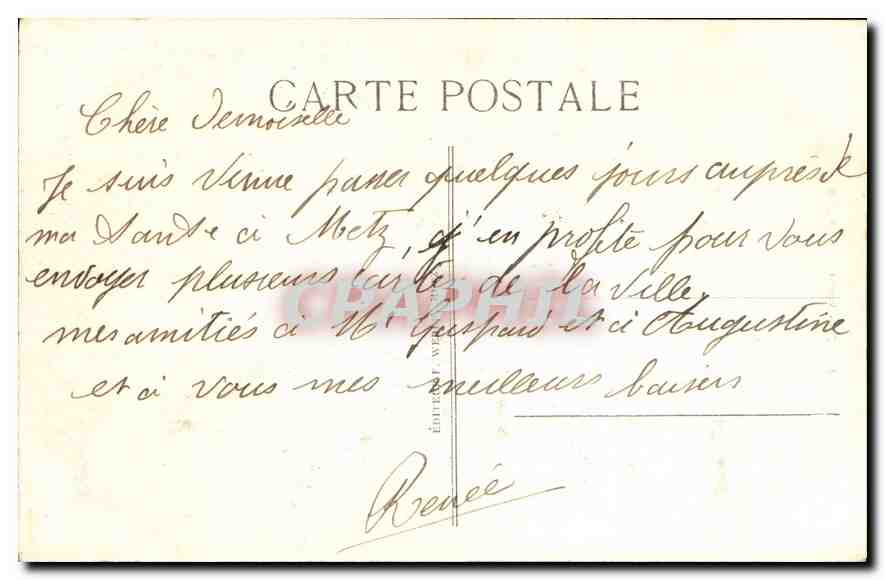 CARTE POSTALE
Chère Demoiselle
Je suis venue passer quelques jours auprès de
ma tante à Metz, j'en profite pour vous
envoyer plusieurs cartes de la ville,
mes amitiés à Mr Guspard et à Augustine
et à vous mes meilleurs baisers
Renée
CPAPHIL